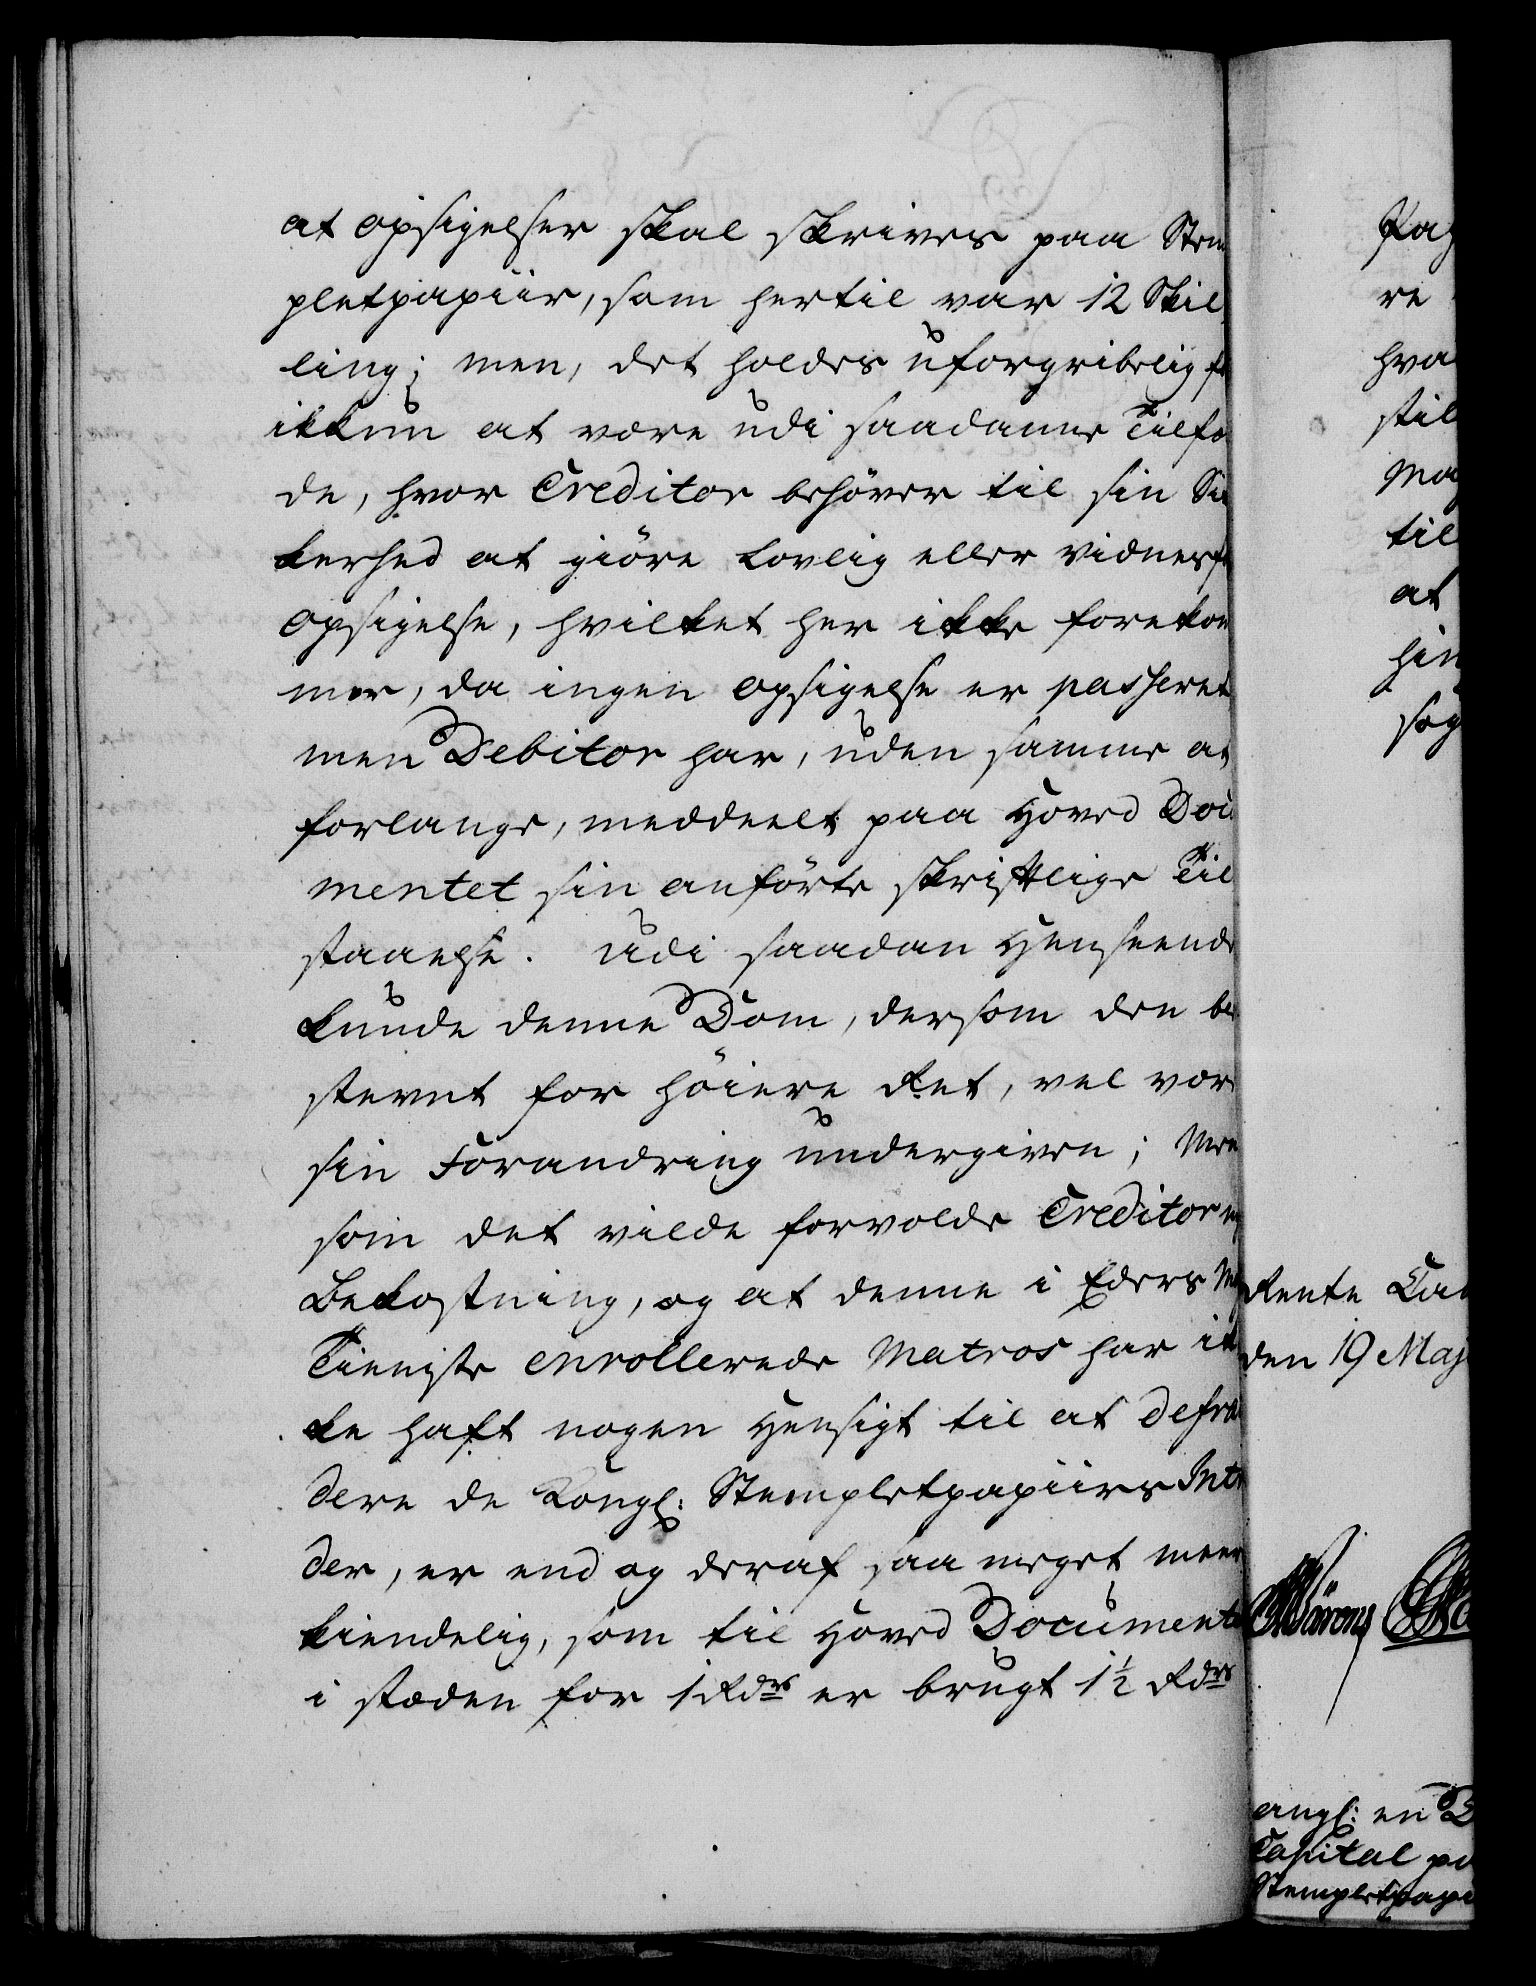 at opsigelser skal skrives paa Stem
pletpapiir, som hertil var 12 Skil,
ling; men, det holdes uforgribelig f
ikkun at være udi saadanne Tilfæ
de, hvor Creditor behöver til sin Sik
kerhed at giöre Lovlig eller vidnesf
Opsigelse, hvilket her ikke forekom
mer, da ingen Opsigelse er passeret
men Debitor har, uden samme at
forlange, meddeelt paa Hoved Docu
mentet sin anförte skriftlige Til
staaelse. Udi saadan Henseende
kunde denne Dom, dersom den be
stevnt for höiere Ret, vel vor
sin Forandring undergiven; Men
som det vilde forvolde Creditor ny
Bekostning, og at denne i Eders May
Tieniste enrollerede Matros har ik
ke haft nogen Hensigt til at defrau
dere de Kongl: Stempletpapiirs Intr
der, er end og deraf saa meget meer
kiendelig, som til Hoved Documente
i stæden for 1 Rdrs er brugt 1½ Rdrs
Pag
re
hva
stil
May
til
at
hin
sög
Rente Cam
den 19 Maj
angl: en D
Capital pa
Stempletpapi